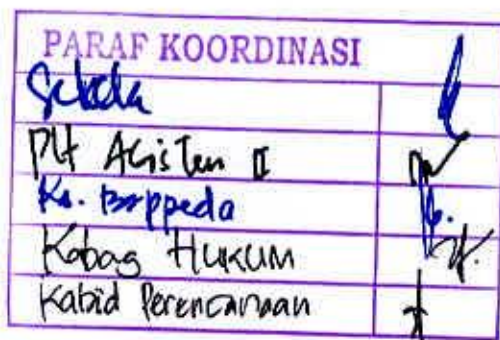 PARAF KOORDINASI
Sekda
Plt Asisten II
Ka. Bappeda
Kabag HUKUM
Kabid Perencanaan